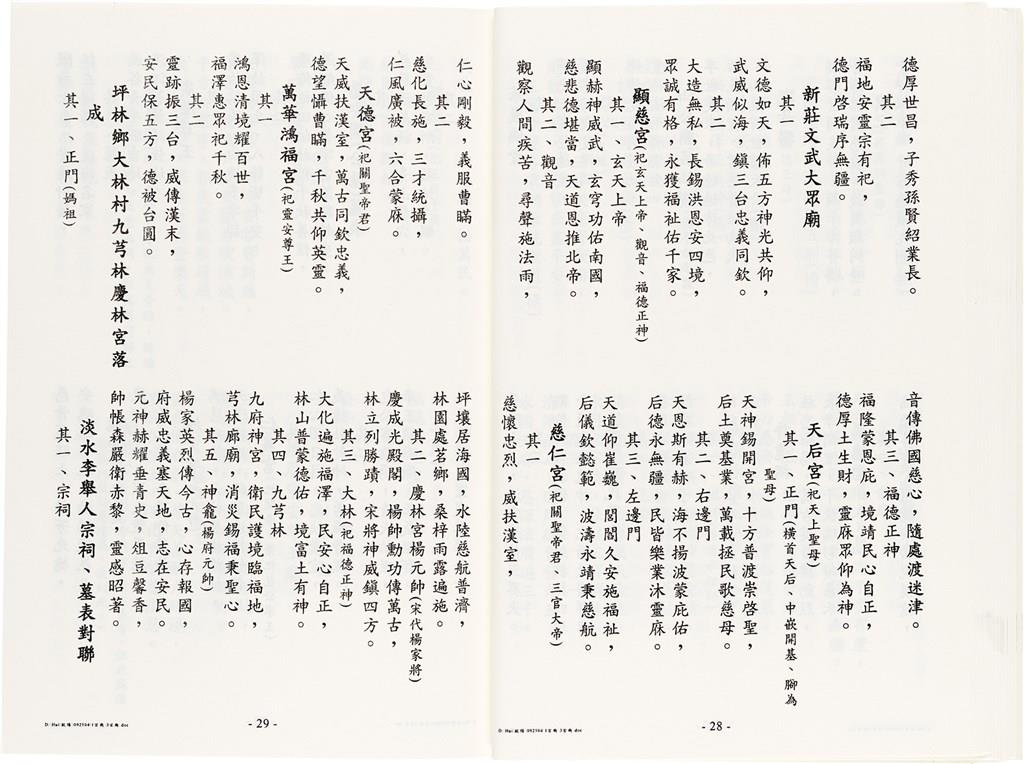 德厚世昌，子秀孫賢紹業長。
其二
福地安靈宗有祀，
德門啓瑞序無疆。
新莊文武大眾廟
其一
文德如天，佈五方神光共仰，
武威似海，鎮三台忠義同欽。
其二
大造無私，長錫洪恩安四境，
眾誠有格，永獲福祉佑千家。
顯慈宮(祀玄天上帝、觀音、福德正神)
其一、玄天上帝
顯赫神威武，玄穹功佑南國，
慈悲德堪當，天道恩推北帝。
其二、觀音
觀察人間疾苦，尋聲施法雨，
音傳佛國慈心，隨處渡迷津。
其三、福德正神
福隆蒙恩庇，境靖民心自正，
德厚土生財，靈庥眾仰為神。
天后宮(祀天上聖母)
其一、正門(橫首天后、中嵌開基、腳為
聖母)
天神錫開宮，十方普渡崇啓聖，
后土奠基業，萬載拯民歌慈母。
其二、右邊門
天恩斯有赫，海不揚波蒙庇佑，
后德永無疆，民皆樂業沐靈庥。
其三、左邊門
天道仰崔巍，閭閻久安施福祉，
后儀欽懿範，波濤永靖秉慈航。
慈仁宮(祀關聖帝君、三官大帝)
其一
慈懷忠烈，威扶漢室，
D:/Hui/敏璋 092504 1宮典 3宮典.doc
- 28 -
仁心剛毅，義服曹瞞。
其二
慈化長施，三才統攝，
仁風廣被，六合蒙庥。
天德宮(祀關聖帝君)
天威扶漢室，萬古同欽忠義，
德望懾曹瞞，千秋共仰英靈。
萬華鴻福宮(祀靈安尊王)
其一
鴻恩清境耀百世，
福澤惠眾祀千秋。
其二
靈跡振三台，威傳漢末，
安民保五方，德被台圓。
坪林鄉大林村九芎林慶林宮落
成
其一、正門(媽祖)
坪壤居海國，水陸慈航普濟，
林園處茗鄉，桑梓雨露遍施。
其二、慶林宮楊元帥(宋代楊家將)
慶成光殿閣，楊帥勳功傳萬古，
林立列勝蹟，宋將神威鎮四方。
其三、大林(祀福德正神)
大化遍施福澤，民安心自正，
林山普蒙德佑，境富土有神。
其四、九芎林
九府神宮，衛民護境臨福地，
芎林廊廟，消災錫福秉聖心。
其五、神龕(楊府元帥)
楊家英烈傳今古，心存報國，
府威忠義塞天地，志在安民。
元神赫耀垂青史，俎豆馨香，
帥帳森嚴衛赤黎，靈感昭著。
淡水李舉人宗祠、墓表對聯
其一、宗祠
- 29 -